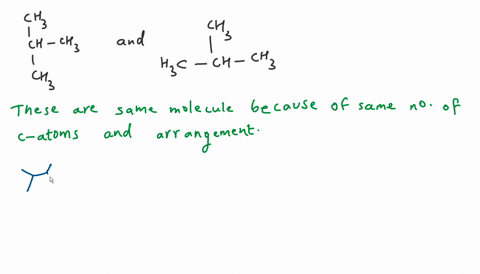 CH3
CH3
CH-CH3 and
H3C-CH-CH3
CH3
These are same molecule because of same no. of
c-atoms and arrangement.